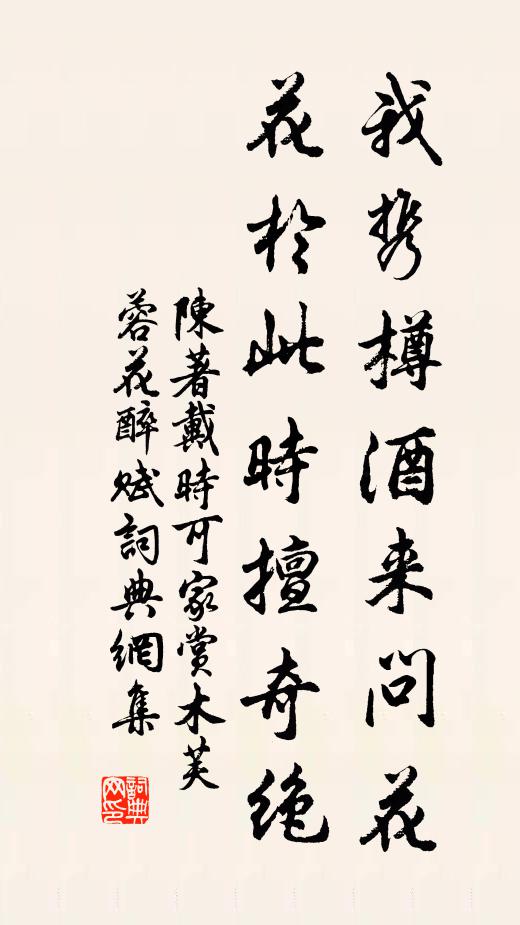 我携樽酒来问花
花於此時擅奇絶
陳著戴時可家賞木芙
蓉花醉赋詞典網集
詞典网印